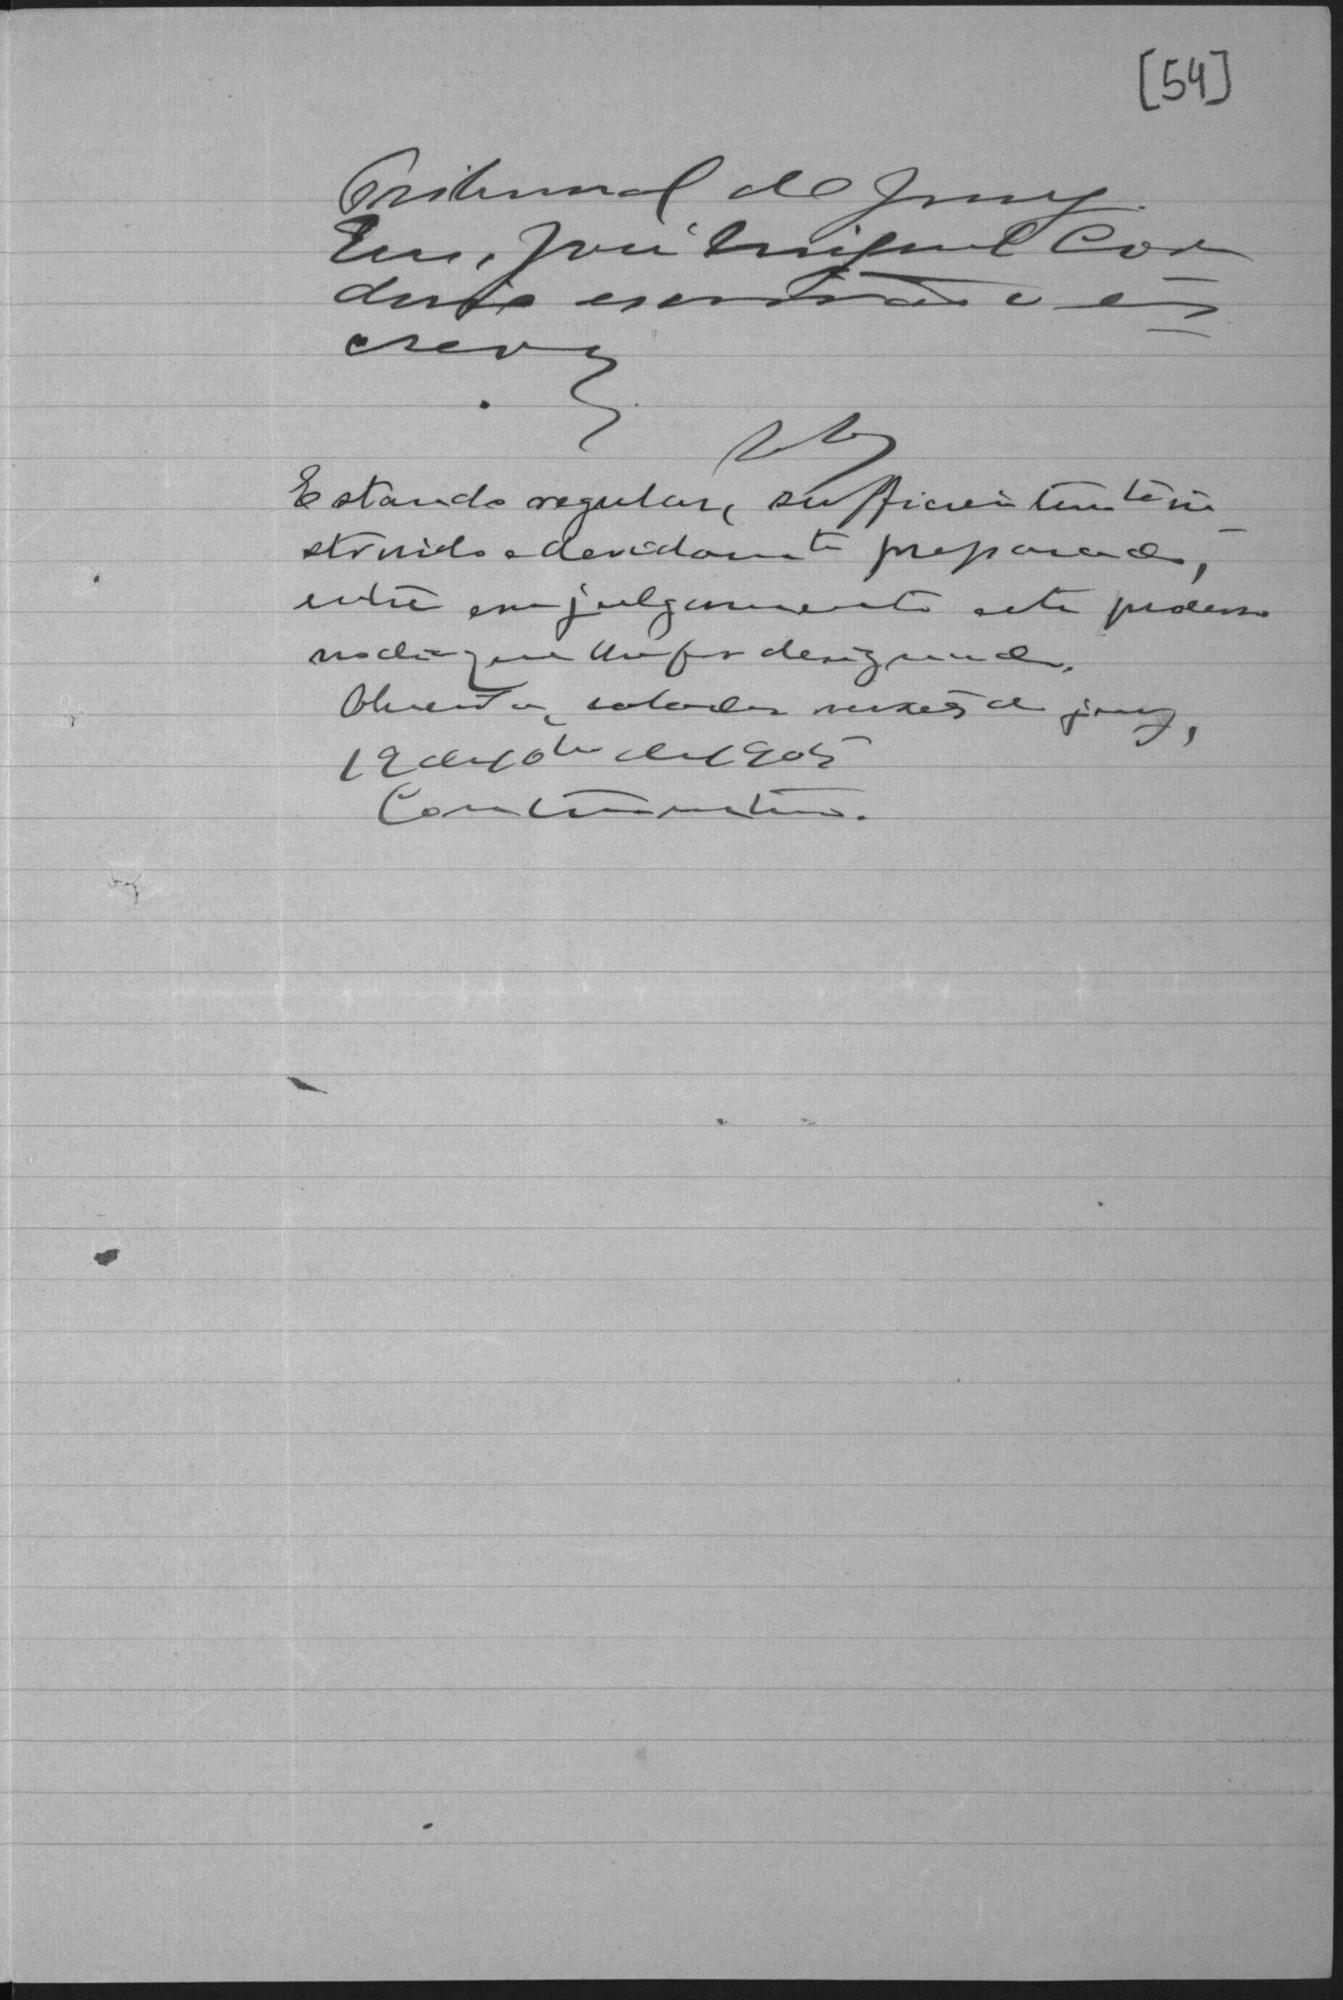 [54]
Tribunal do Jury.
Eu, José Miguel Cor
deiro escrivão o es
crevy
Estando regular, sufficientemte in
struido e devidamte preparado,
entre em julgamento este processo
no dia que lhe for designado.
sala das sessões do jury,
12 de 10bro de 1905
Constantino.